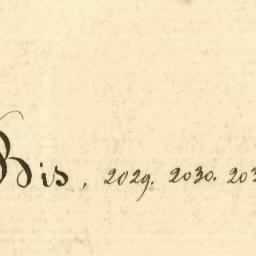 Bis, 2029. 2030. 203